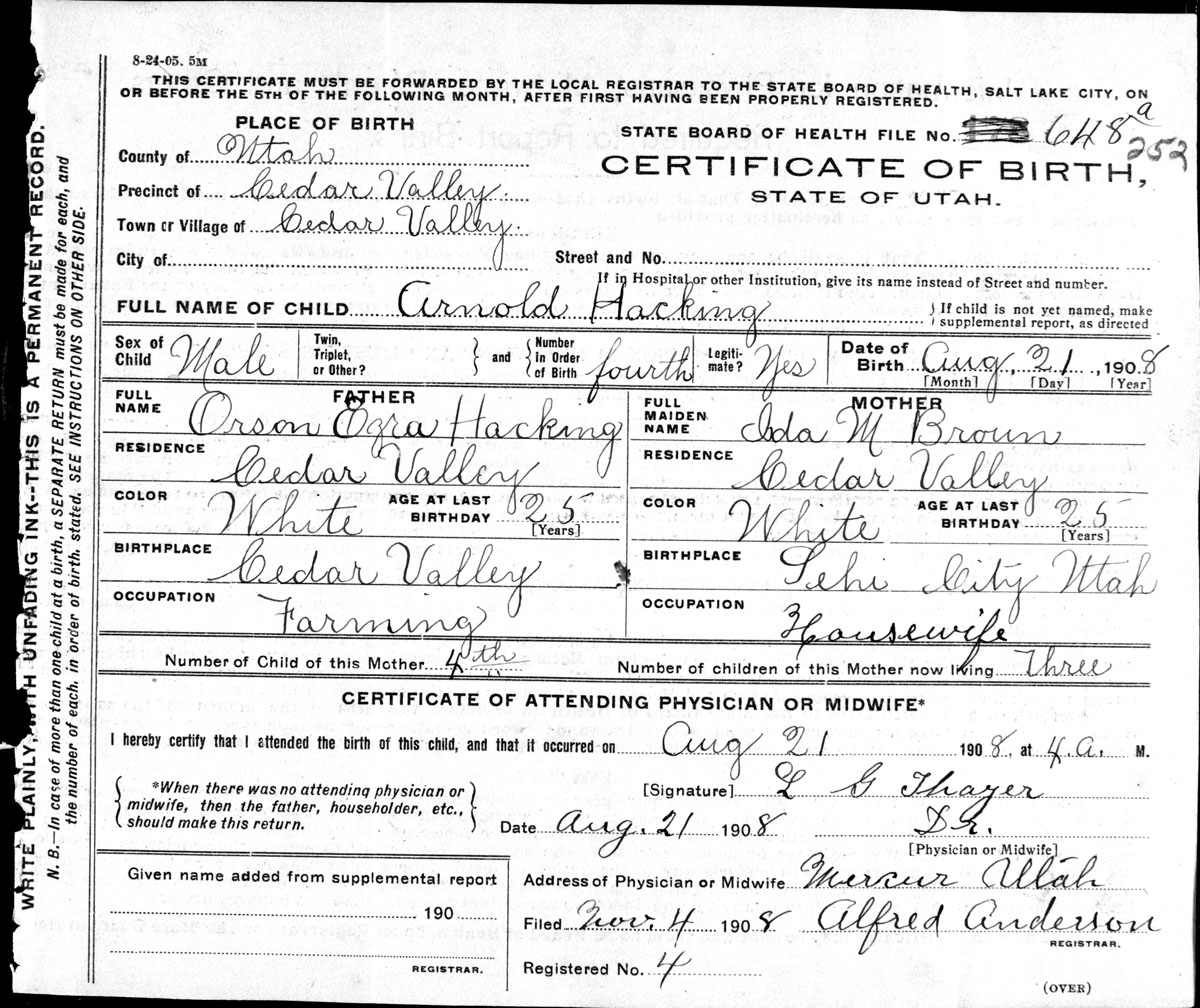 8-24-05. 5M
THIS CERTIFICATE MUST BE FORWARDED BY THE LOCAL REGISTRAR TO THE STATE BOARD OF HEALTH, SALT LAKE CITY, ON
OR BEFORE THE 5TH OF THE FOLLOWING MONTH, AFTER FIRST HAVING BEEN PROPERLY REGISTERED.
WRITE PLAINLY, WITH UNFADING INK--THIS IS A PERMANENT RECORD.
N. B.—In case of more than one child at a birth, a SEPARATE RETURN must be made for each, and
the number of each, in order of birth, stated. SEE INSTRUCTIONS ON OTHER SIDE.
PLACE OF BIRTH
STATE BOARD OF HEALTH FILE No. 648 a
252
County of Utah
CERTIFICATE OF BIRTH,
Precinct of Cedar Valley
STATE OF UTAH.
Town or Village of Cedar Valley
City of Street and No.
If in Hospital or other Institution, give its name instead of Street and number.
FULL NAME OF CHILD Arnold Hacking } If child is not yet named, make
supplemental report, as directed
Sex of Child Male Twin, Triplet, or Other? } and { Number in Order of Birth fourth Legiti-mate? Yes Date of Birth Aug, 21, 1908
[Month] [Day] [Year]
FATHER MOTHER
FULL NAME Orson Ezra Hacking FULL MAIDEN NAME Ida M Brown
RESIDENCE Cedar Valley RESIDENCE Cedar Valley
COLOR White AGE AT LAST BIRTHDAY 25 [Years] COLOR White AGE AT LAST BIRTHDAY 25 [Years]
BIRTHPLACE Cedar Valley BIRTHPLACE Lehi City Utah
OCCUPATION Farming OCCUPATION Housewife
Number of Child of this Mother 4th Number of children of this Mother now living Three
CERTIFICATE OF ATTENDING PHYSICIAN OR MIDWIFE*
I hereby certify that I attended the birth of this child, and that it occurred on Aug 21 1908, at 4 a. M.
{ *When there was no attending physician or
midwife, then the father, householder, etc.,
should make this return. }
[Signature] L G Thayer
Date Aug. 21 1908 Dr.
[Physician or Midwife]
Given name added from supplemental report
190
REGISTRAR.
Address of Physician or Midwife Mercur Utah
Filed Nov. 4 1908 Alfred Anderson
REGISTRAR.
Registered No. 4
(OVER)